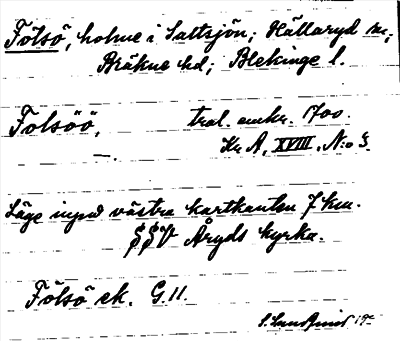 Fölsö, holme i Saltsjön; Hällaryd sn;
Bräkne hd; Blekinge l.
Folsöö, tral. omkr. 1700.
—. Kr A, XVIII, N:o 3.
Läge invid västra kartkanten 7 km.
SSV Åryds kyrka.
Fölsö ek. G 11.